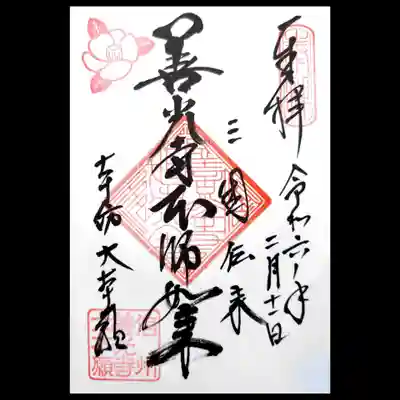 奉拝
令和六年
二月十一日
三国伝来
善光寺本師如来
本坊大本願